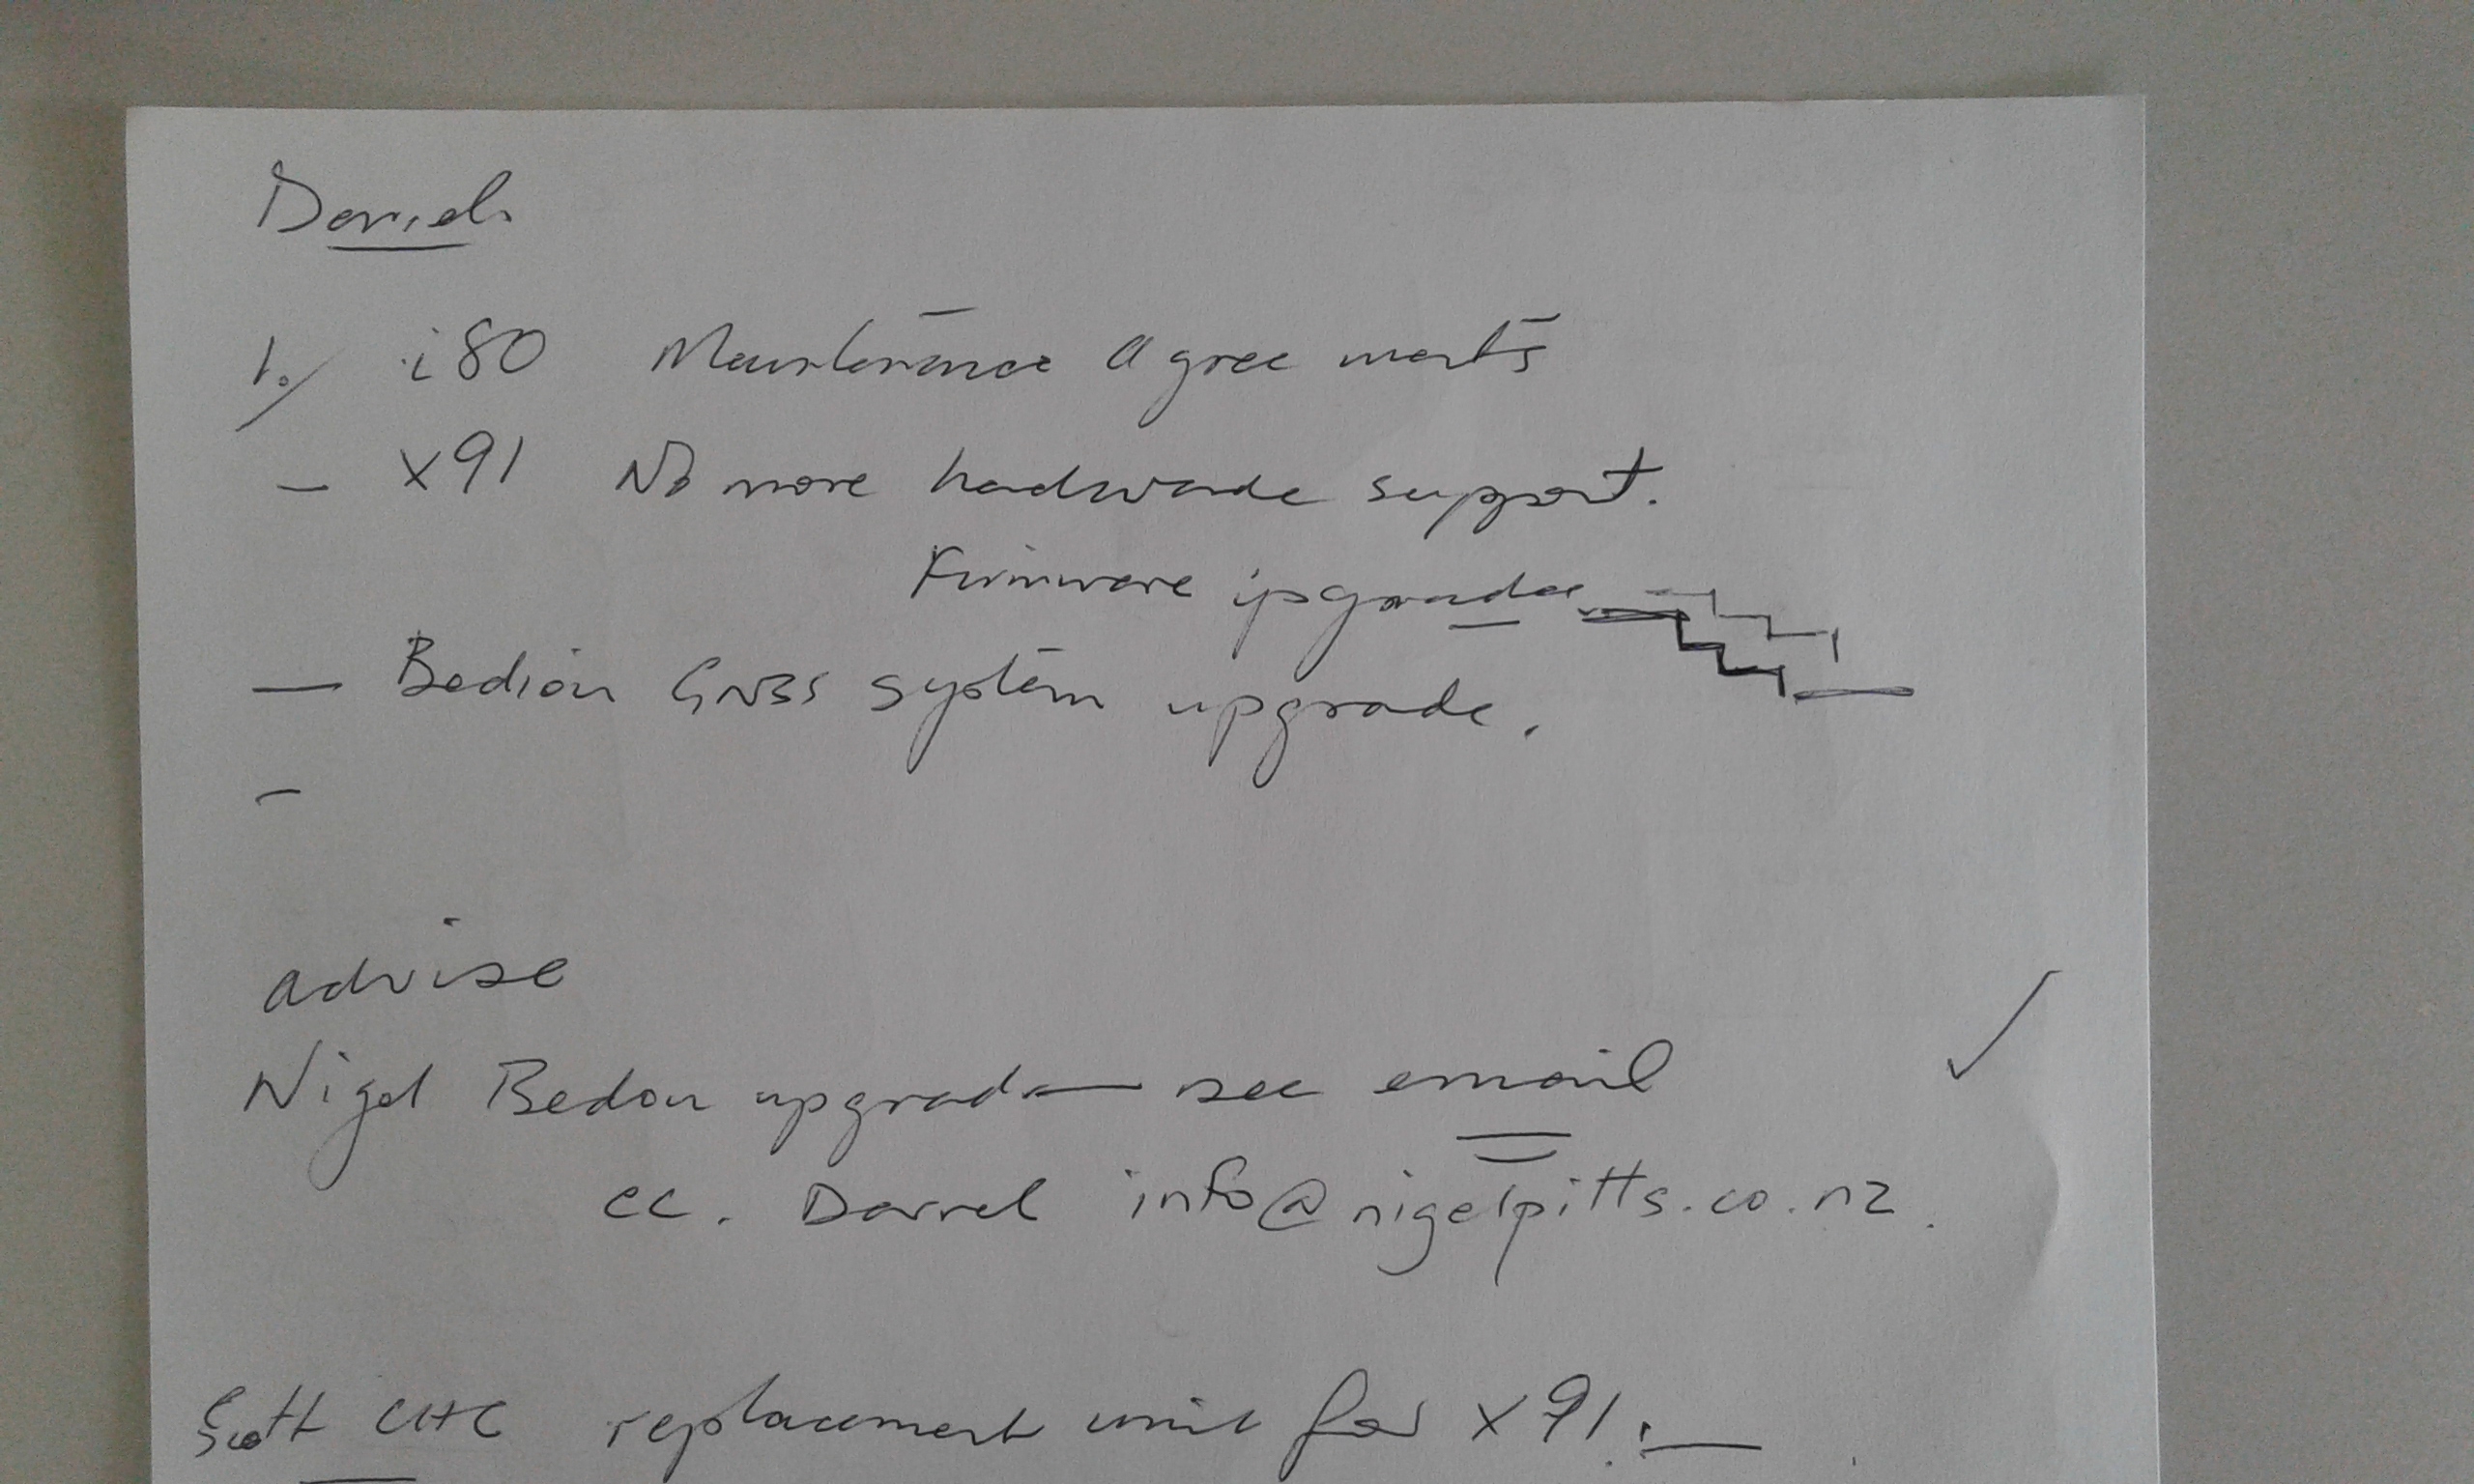 Daniel.
1. i80 Maintenance Agreements
- X91 No more hardware support.
Firmware upgrades
- Bediou GNSS system upgrade.
-
advise
Nigel Bedou upgrade see email ✓
cc. Darrel info@nigelpitts.co.nz.
Scott CHC replacement unit for X91. -